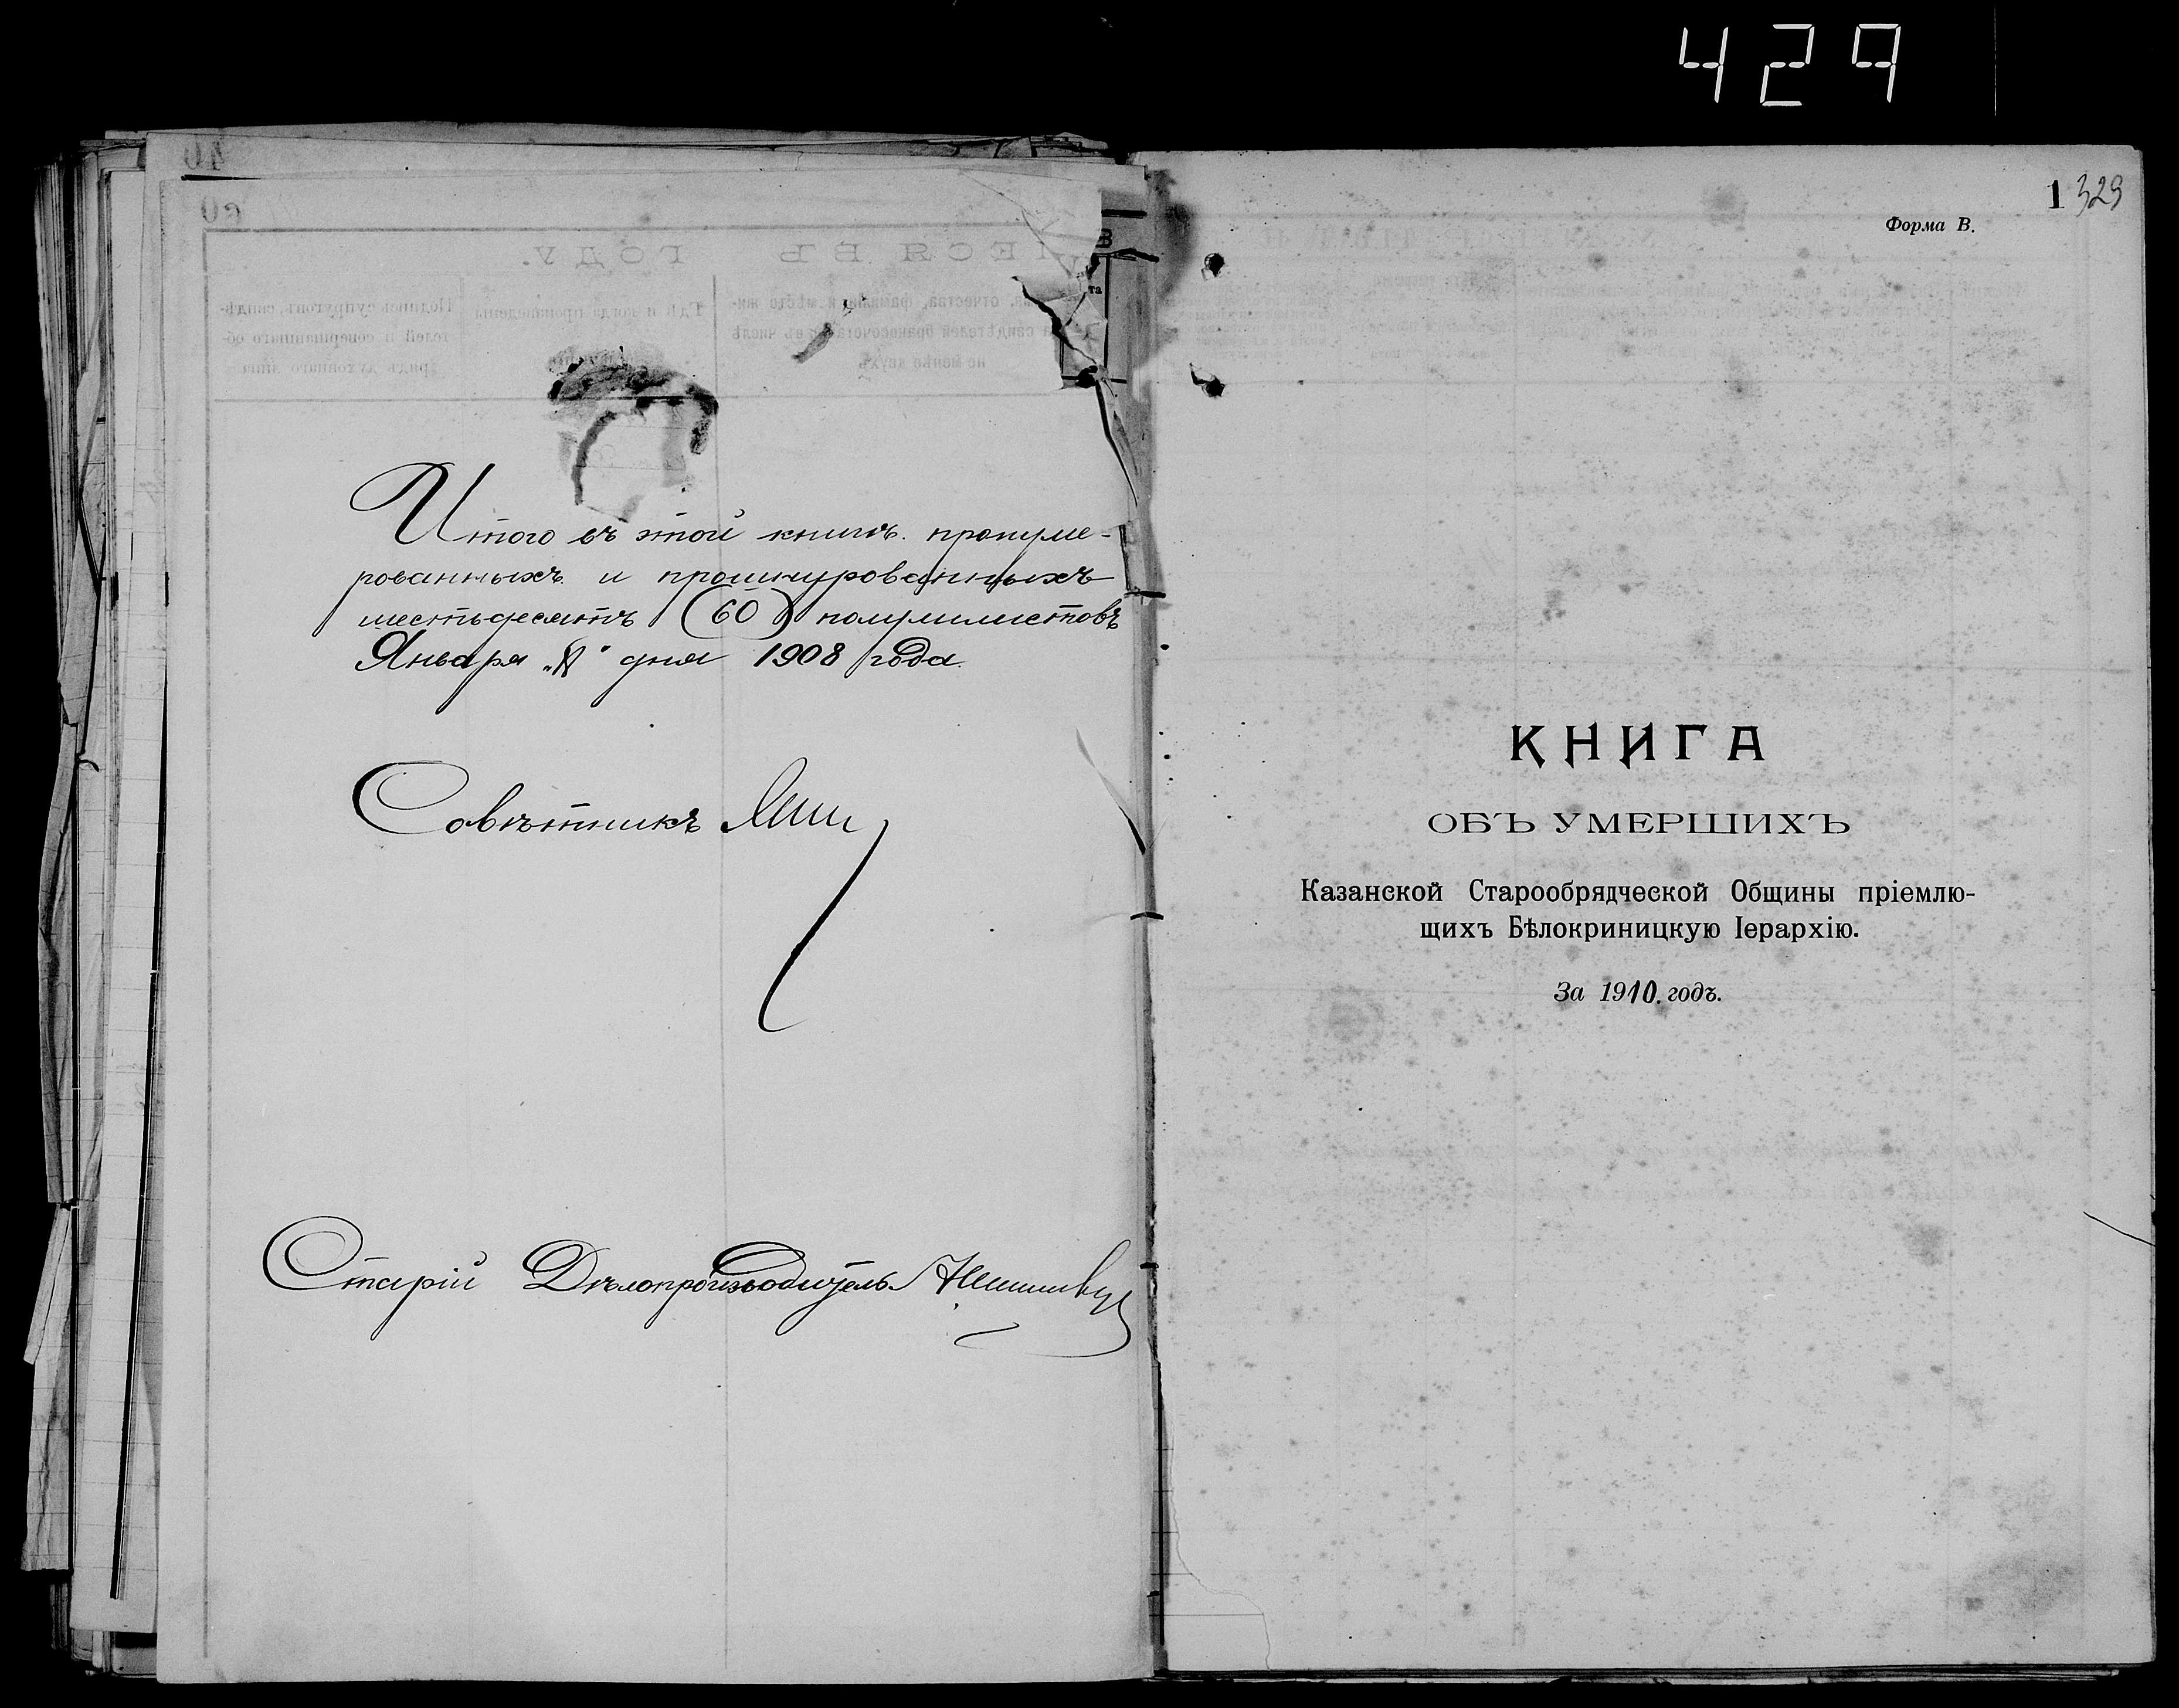 429
Итого въ этой книгѣ прошуме-
рованныхъ и прошнурованныхъ
шестьдесятъ (60) полулистовъ
Января дня 1908 года.
Совѣтникъ
Старій Дѣлопроизводитель
1 329
Форма В.
КНИГА
ОБЪ УМЕРШИХЪ
Казанской Старообрядческой Общины пріемлю-
щихъ Бѣлокриницкую Іерархію.
За 1910. годъ.